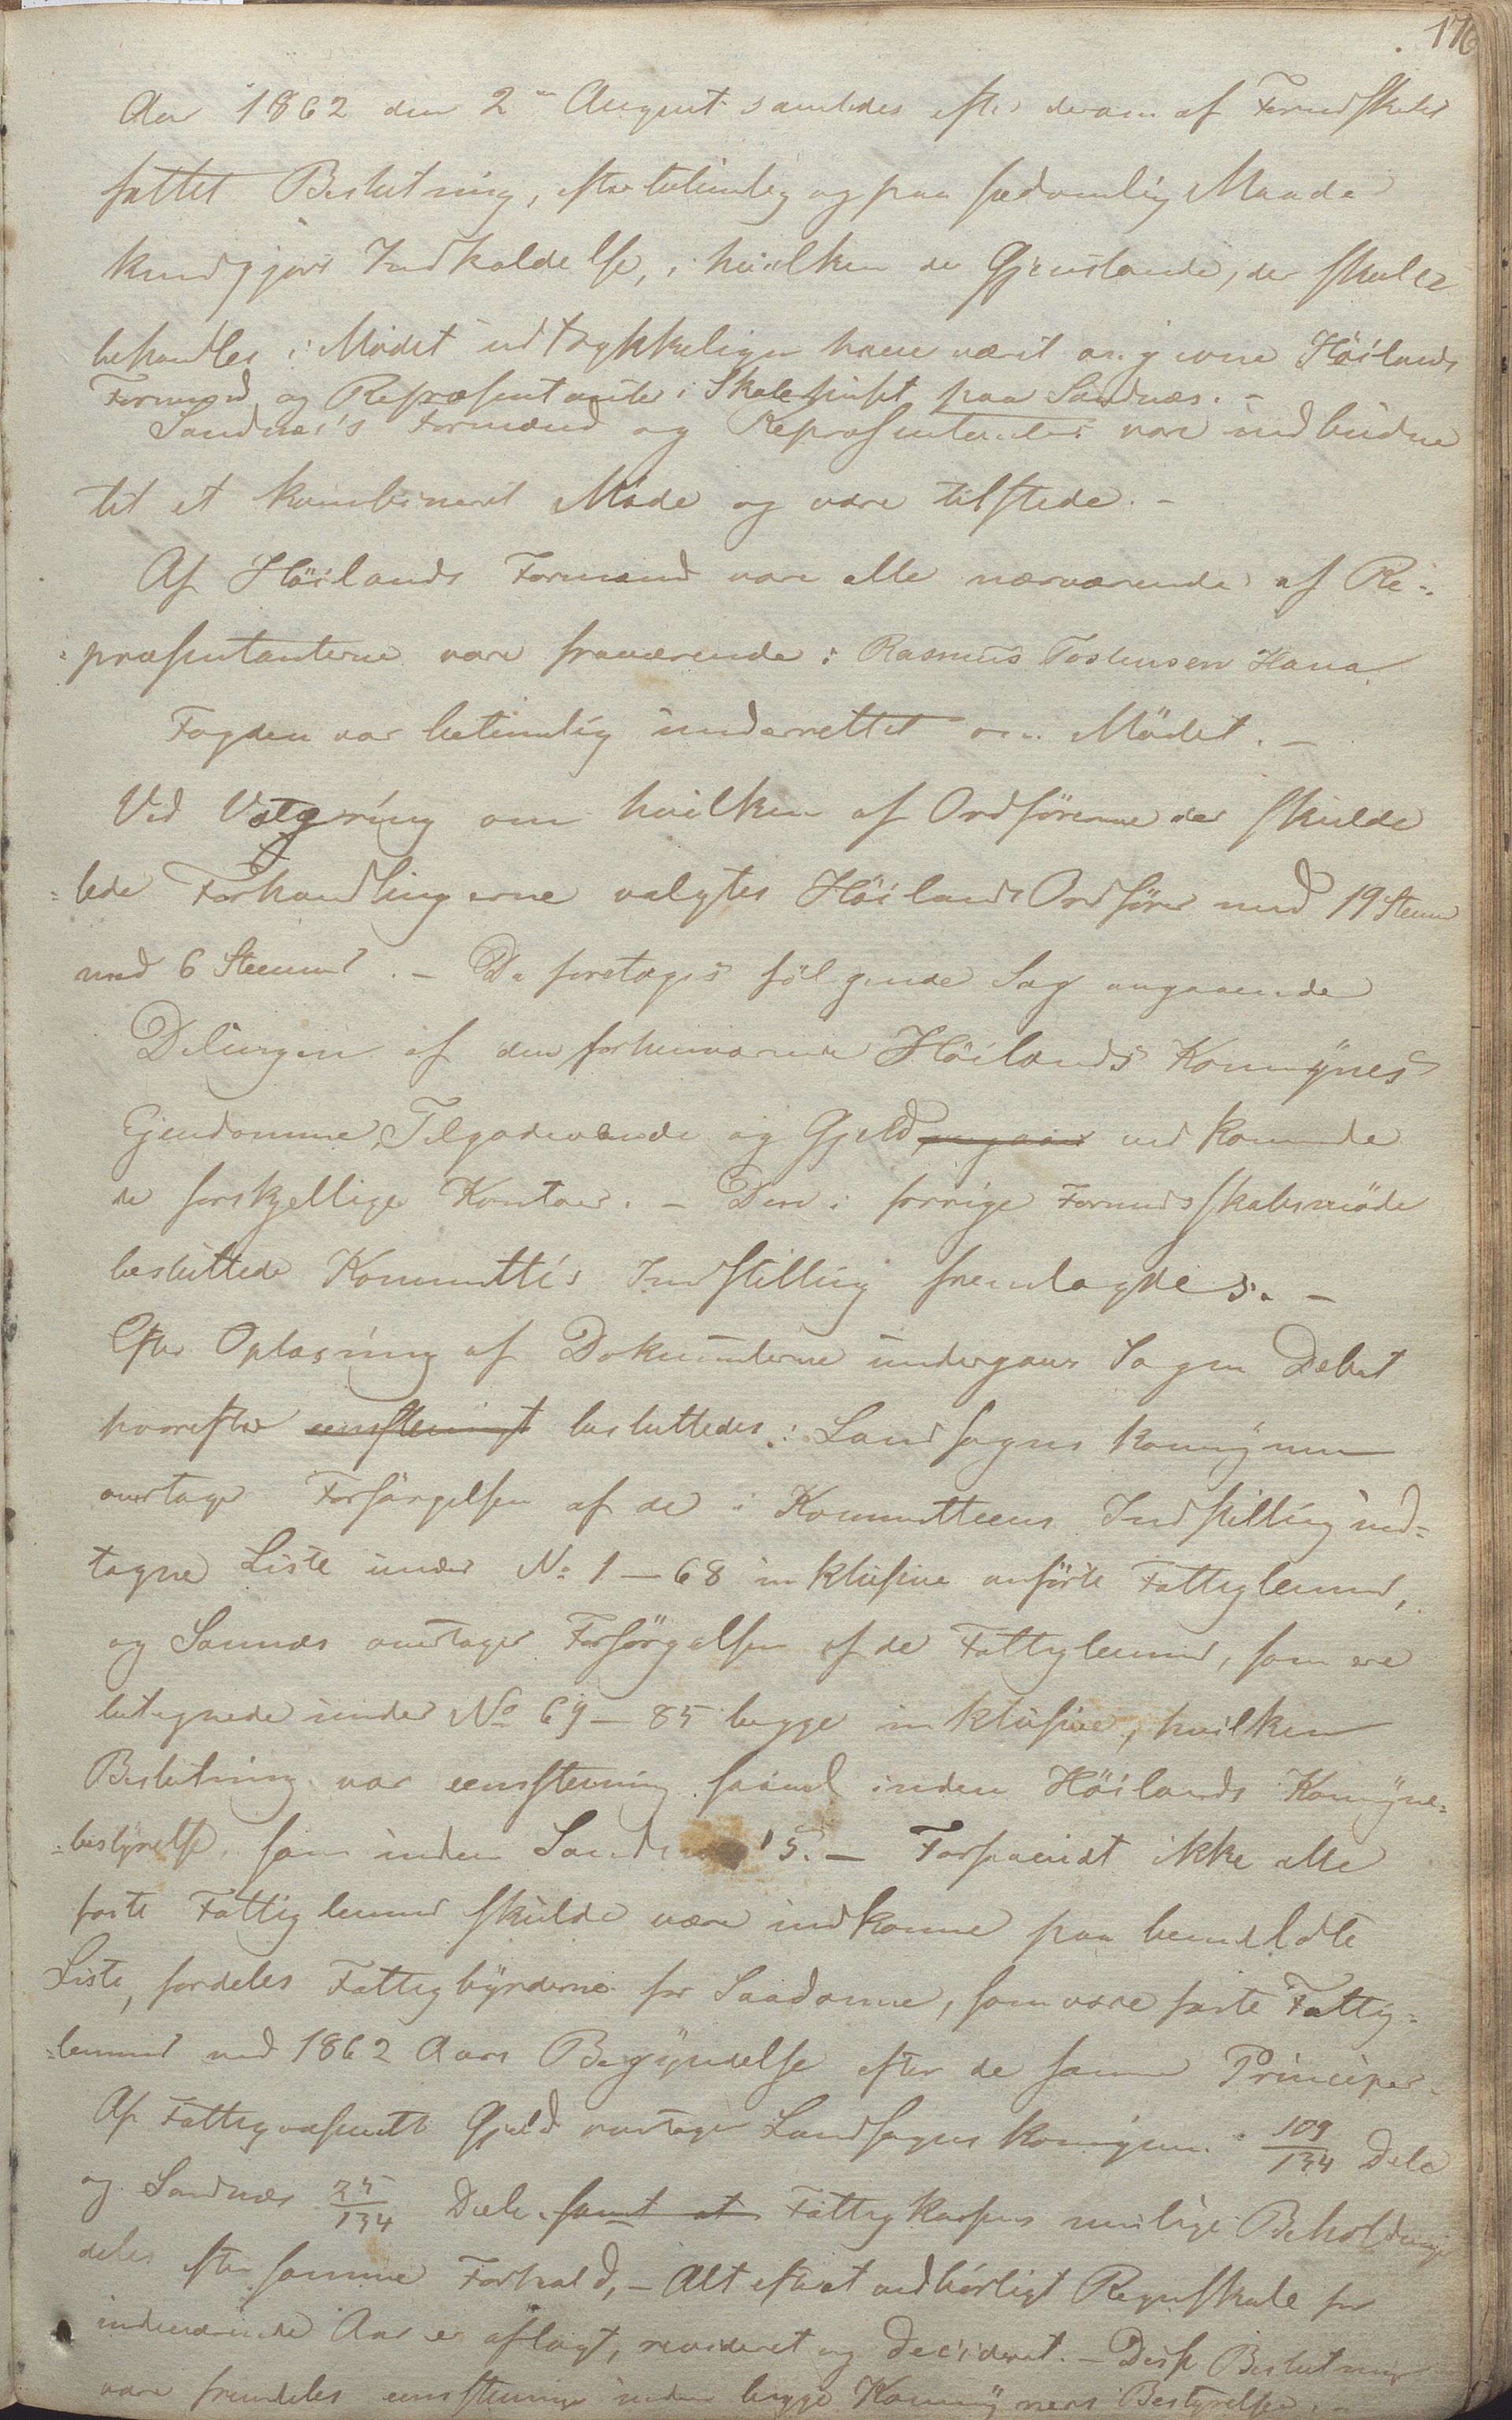 176
Aar 1862 den 2den August samledes efter derom af Formdskabet
fattet Beslutning, efter betimelig og paa sædvanlig Maade
kundgjort Indkaldelse, i hvilken de Gjenstande, der skulle
behandles i Mødet udtrykkeligen have været angivne Höilands
Formænd og Repræsentanter i Skolehuset paa Sandnæs. -
Sandnæs's Formænd og Repræsentanter vare indbudne
til et kombineret Møde og vare tilstede. -
Af Höilands Formænd vare alle nærværende af Re-
præsentanterne vare fraværende: Rasmus Tostensen Hana
Fogden var betimelig underrettet om Mödet. -
Ved Votering om hvilken af Ordförerne der skulde
lede Forhandlingerne valgtes Höilands Ordförer med 19 Stemmer
mod 6 Stemmer. - Da foretoges fölgende Sag angaaende
Delingen af den forhenværende Höilands Komünes
Ejendomme, Tilgodehavende og Gjeld angaar vedkommende
de forskjellige Kontoer. - Den i forrige Formdskabsmöde
besluttede Kommittés Indstilling fremlagdes. -
Efter Oplæsning af Dokumenterne undergav Sagen Debat
hvorefter eenstemmigt besluttedes: Landsognes Komünen
overtager Forsörgelsen af de i Kommitteens Indstilling ind-
tagne Liste under No 1 - 68 inklusive anförte Fattiglemmer,
og Sannæs overtager Forsörgelsen af de Fattiglemmer, som ere
betegnede under No 69 - 85 begge inklusive, hvilken
Beslutning var eenstemmig saavel inden Höilands Komüne-
bestyrelse, som inden Sandnæs's. - Forsaavidt ikke alle
faste Fattiglemmer skulde være indkomne paa bemeldte
Liste, fordeles Fattigbyrderne for Saadanne, som vare faste Fattig-
lemmer ved 1862 Aars Begyndelse efter de samme Principer.
Af Fattigvæsenets Gjeld overtager Landsognes Komünen 109/134 Dele
og Sandnæs 25/134 Dele. samt at Fattigkassens mulige Beholdninger
deles efter samme Forhold, - Alt efterat vedbörligt Regnskab for
indeværende Aar er aflagt, revideret og decideret. - Disse Beslutninger
vare fremdeles eenstemmige inden begge Komüners Bestyrelser. -